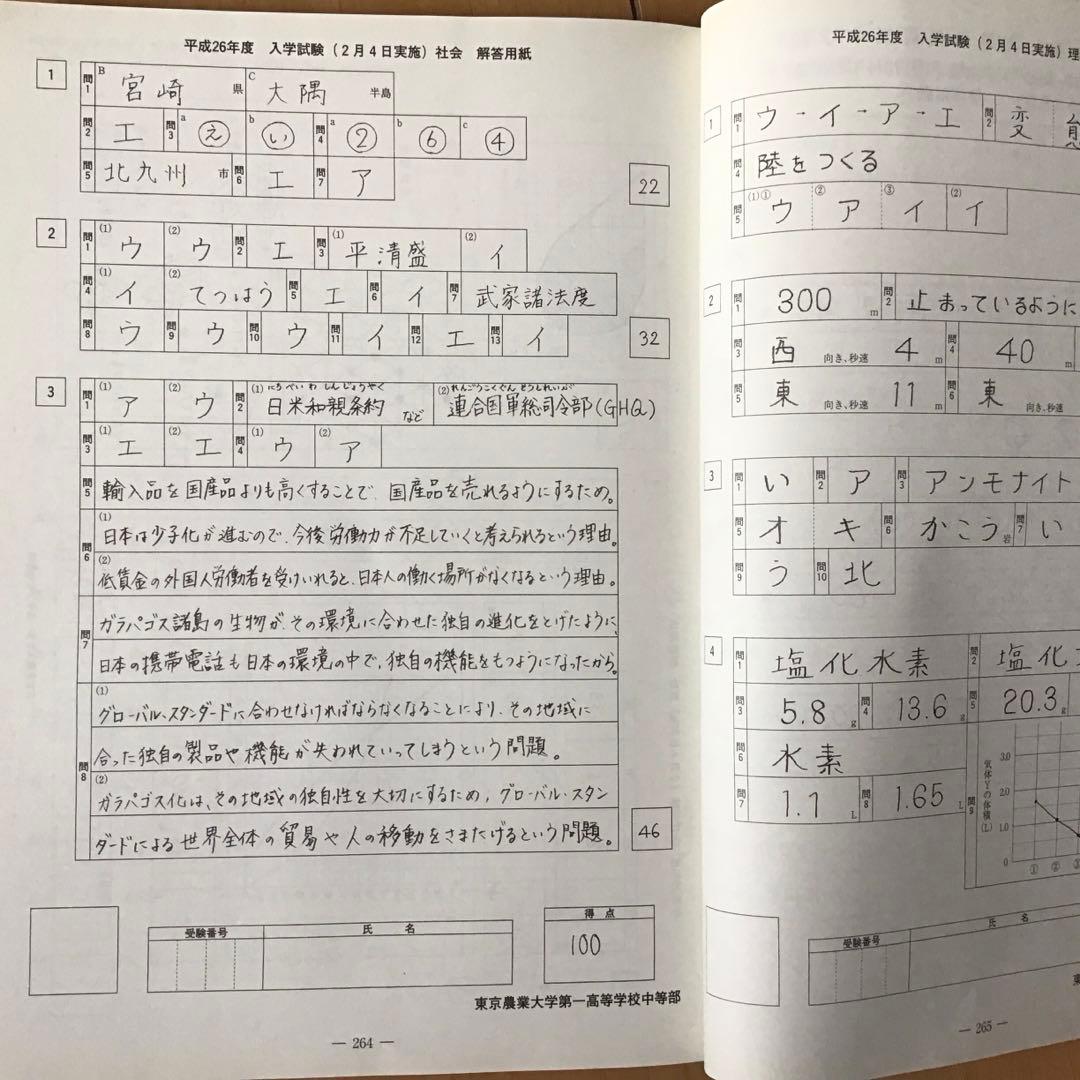 平成26年度 入学試験(2月4日実施)社会 解答用紙
1
問1 B 宮崎 県 C 大隅 半島
問2 エ 問3 a え b い 問4 a ② b ⑥ c ④
問5 北九州 市 問6 エ 問7 ア
22
2
問1 (1) ウ (2) ウ 問2 エ 問3 (1) 平清盛 (2) イ
問4 (1) イ (2) てつはう 問5 エ 問6 イ 問7 武家諸法度
問8 ウ 問9 ウ 問10 ウ 問11 イ 問12 エ 問13 イ
32
3
問1 (1) ア (2) ウ 問2 (1) にちべいわしんじょうやく 日米和親条約 など (2) れんごうこくぐんそうしれいぶ 連合国軍総司令部(GHQ)
問3 (1) エ (2) エ 問4 (1) ウ (2) ア
問5 輸入品を国産品よりも高くすることで、国産品を売れるようにするため。
問6 (1) 日本は少子化が進むので、今後労働力が不足していくと考えられるという理由。
(2) 低賃金の外国人労働者を受けいれると、日本人の働く場所がなくなるという理由。
問7 ガラパゴス諸島の生物が、その環境に合わせた独自の進化をとげたように、
日本の携帯電話も日本の環境の中で、独自の機能をもつようになったから。
問8 (1) グローバル・スタンダードに合わせなければならなくなることにより、その地域に
合った独自の製品や機能が失われていってしまうという問題。
(2) ガラパゴス化は、その地域の独自性を大切にするため、グローバル・スタン
ダードによる世界全体の貿易や人の移動をさまたげるという問題。
46
受験番号 氏名 得点
100
東京農業大学第一高等学校中等部
— 264 —
平成26年度 入学試験(2月4日実施)理
1
問1 ウ - イ - ア - エ 問2 変 態
問4 陸をつくる
問5 (1)① ウ ② ア ③ イ (2) イ
2
問1 300 m 問2 止まっているように
問3 西 向き、秒速 4 m 問4 40 m
問5 東 向き、秒速 11 m 問6 東 向き、秒速
3
問1 い 問2 ア 問3 アンモナイト
問5 オ キ 問6 かこう 岩 問7 い
問9 う 問10 北
4
問1 塩化水素 問2 塩化
問3 5.8 g 問4 13.6 g 問5 20.3
問6 水素
問7 1.1 L 問8 1.65 L
問9 気体Yの体積(L) 3.0 2.0 1.0 0 ① ② ③
受験番号 氏名
— 265 —